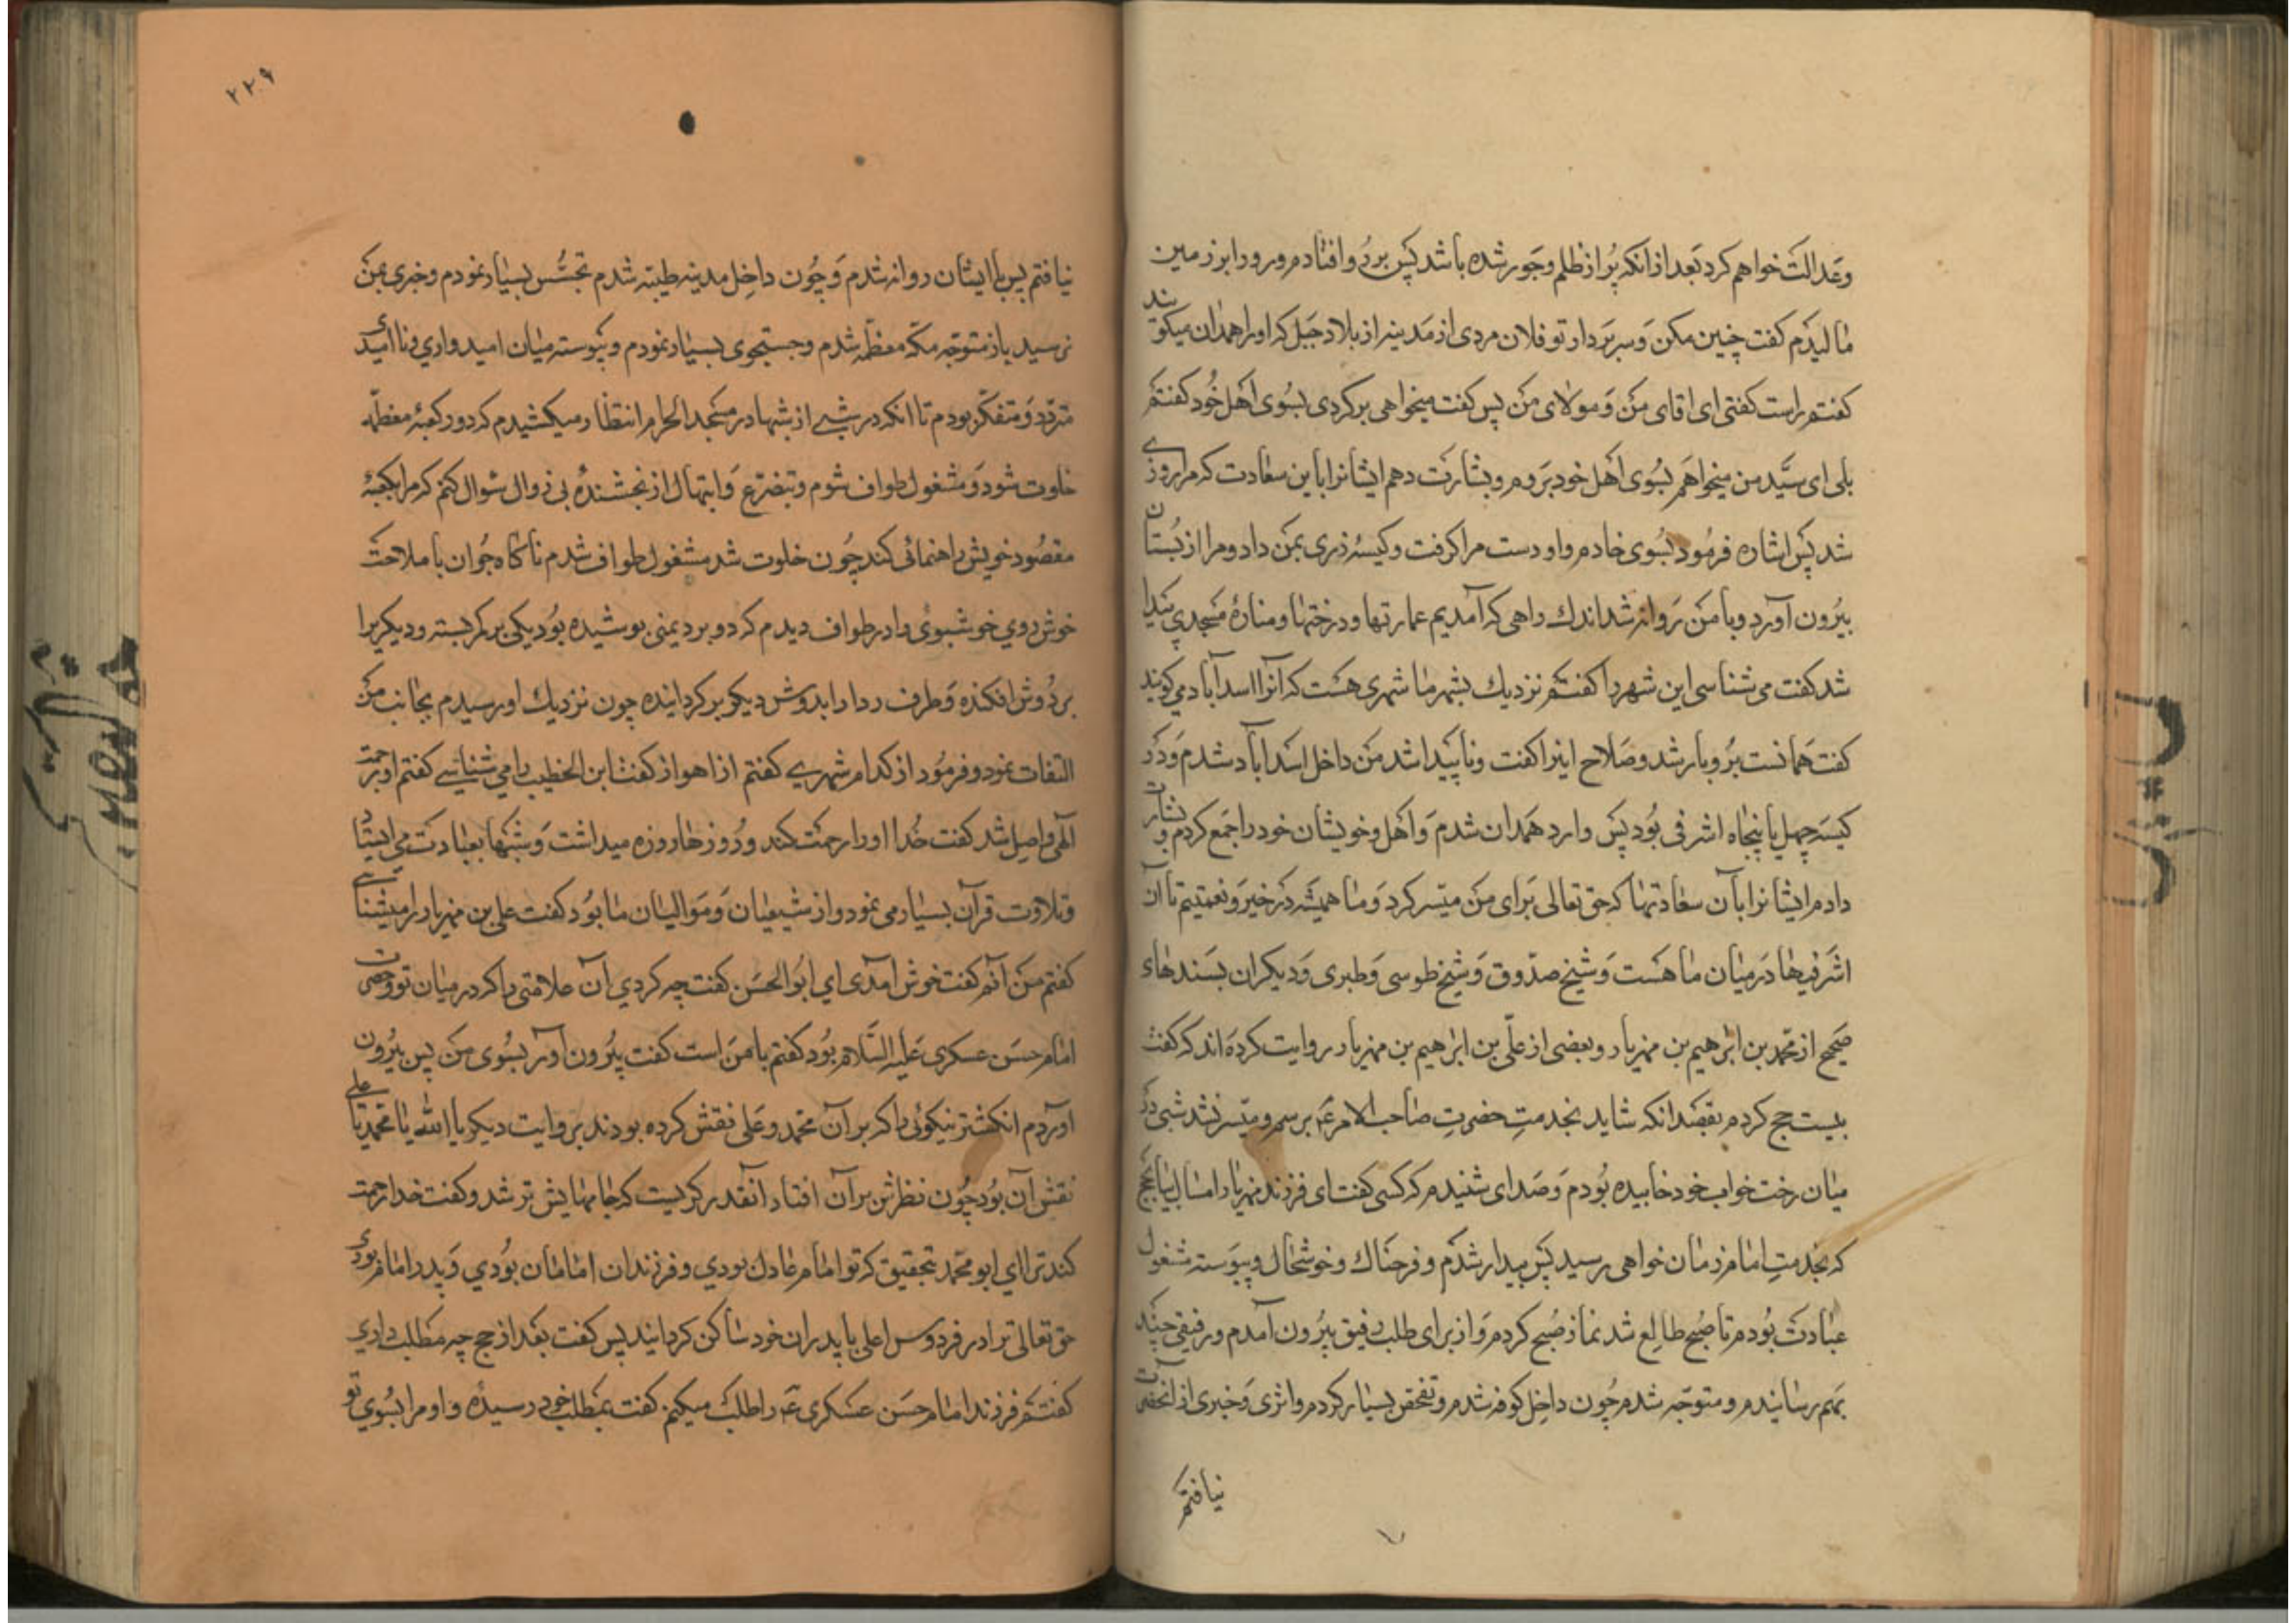 وعدالت خواهم کرد بعد از آنکه پُر از ظلم و جور شده باشد پس بر رُو افتادم و رو را بر زمین
مالیدم گفت چنین مکن و سر بردار تو فلان مردی از مدینه از بلاد جبل که او را همدان میگویند
گفتم راست گفتی ای اقای من و مولای من پس گفت میخواهی برگردی بسوی اهل خود گفتم
بلی ای سیّد من میخواهم بسوی اهل خود بروم و بشارت دهم ایشانرا باین سعادت که مرا روزی
شد پس اشاره فرمود بسوی خادم و او دست مرا گرفت و کیسهٔ زری بمن داد و مرا از بُستان
بیرون آورد و با من روانه شد اندك راهی که آمدیم عمارتها و درختها و منارهٔ مسجدی پیدا
شد گفت می شناسی این شهر را گفتم نزدیك بشهر ما شهری هست که آنرا اسدآباد می گویند
گفت همانست بُرو بارشد و صلاح اینرا گفت و ناپیدا شد من داخل اسدآباد شدم و در
کیسه چهل یا پنجاه اشرفی بود پس وارد همدان شدم و اهل و خویشان خود را جمع کردم و بشارت
دادم ایشانرا بآن سعادتها که حق تعالی برای من میسّر کرد و ما همیشه در خیر و نعمتیم تا آن
اشرفیها در میان ما هست و شیخ صدّوق و شیخ طوسی و طبری و دیگران بسندهای
صحیح از محمّد بن ابرهیم بن مهزیار و بعضی از علی بن ابراهیم بن مهزیار روایت کرده اند که گفت
بیست حج کردم بقصد انکه شاید بخدمتِ حضرتِ صاحب الامر ع برسم و میّسر نشد شبی در
میان رخت خواب خود خابیده بودم و صدای شنیدم که کسی گفت ای فرزند مهزیار امسال بیا بحج
که بخدمتِ امام زمان خواهی رسید پس بیدار شدم و فرحناك و خوشحال و پیوسته مشغول
عبادت بودم تا صُبح طالع شد نماز صُبح کردم و از برای طلب رفیق بیرون آمدم و رفیقی چند
بهم رسانیدم و متوجّه شدم چون داخل کوفه شدم و تفحّص بسیار کردم و اثری و خبری از آنحضرت
نیافتم
۲۲۹
نیافتم پس با ایشان روانه شدم و چون داخل مدینه طیبه شدم تجسّس بسیار نمودم و خبری بمن
نرسید باز متوجّه مکّه معظّمه شدم و جستجوی بسیار نمودم و پیوسته میان امیدواری و نا امیدی
متردّد و متفکّر بودم تا انکه در شبی از شبها در مسجد الحرام انتظار میکشیدم که دور کعبهٔ معظّمه
خلوت شود و مشغول طواف شوم و بتضرّع و ابتهال از بخشندهٔ بی زوال سُوال کنم که مرا بکعبهٔ
مقصود خویش راهنمائی کند چون خلوت شد مشغول طواف شدم ناگاه جُوان با ملاحت
خوش روی خوشبوئی را در طواف دیدم که دو برد یمنی پوشیده بود یکی بر کمر بسته و دیگریرا
بر دُوش افکنده و طرف ردا را بدوش دیگر برگردانیده چون نزدیك او رسیدم بجانب من
التفات نمود و فرمود از کدام شهری گفتم از اهواز گفت ابن الخطیب را می شناسی گفتم او برحمت
الٓهی واصل شد گفت خُدا او را رحمت کند و رُوزها روزه میداشت و شبها بعبادت می ایستاد
و تلاوت قرآن بسیار می نمود و از شیعیان و موالیان ما بود گفت علی بن مهزیار را میشناسی
گفتم من آنم گفت خوش آمدی ای ابُو الحسن گفت چه کردی آن علامتی را که در میان تو و حضرت
امام حسن عسکری علیه السّلام بود گفتم با من است گفت بیرون آور بسوی من پس بیرون
آوردم انگشتر نیکوئی را که بر آن محمّد و علی نقش کرده بودند بروایت دیگر یا الله یا محمّد یا علی
نقش آن بود چون نظرش بر آن افتاد آنقدر گریست که جامهایش تر شد و گفت خدا رحمت
کند ترا ای ابو محمّد بتحقیق که تو امام عادل بودی و فرزندان امامان بودی و پدر امام بودی
حق تعالی ترا در فردوس اعلی با پدران خود ساکن گرداند پس گفت بعد از حج چه مطلب داری
گفتم فرزند امام حسن عسکری ع را طلب میکنم گفت بمطلب خود رسیدهٔ و او مرا بسوی تو